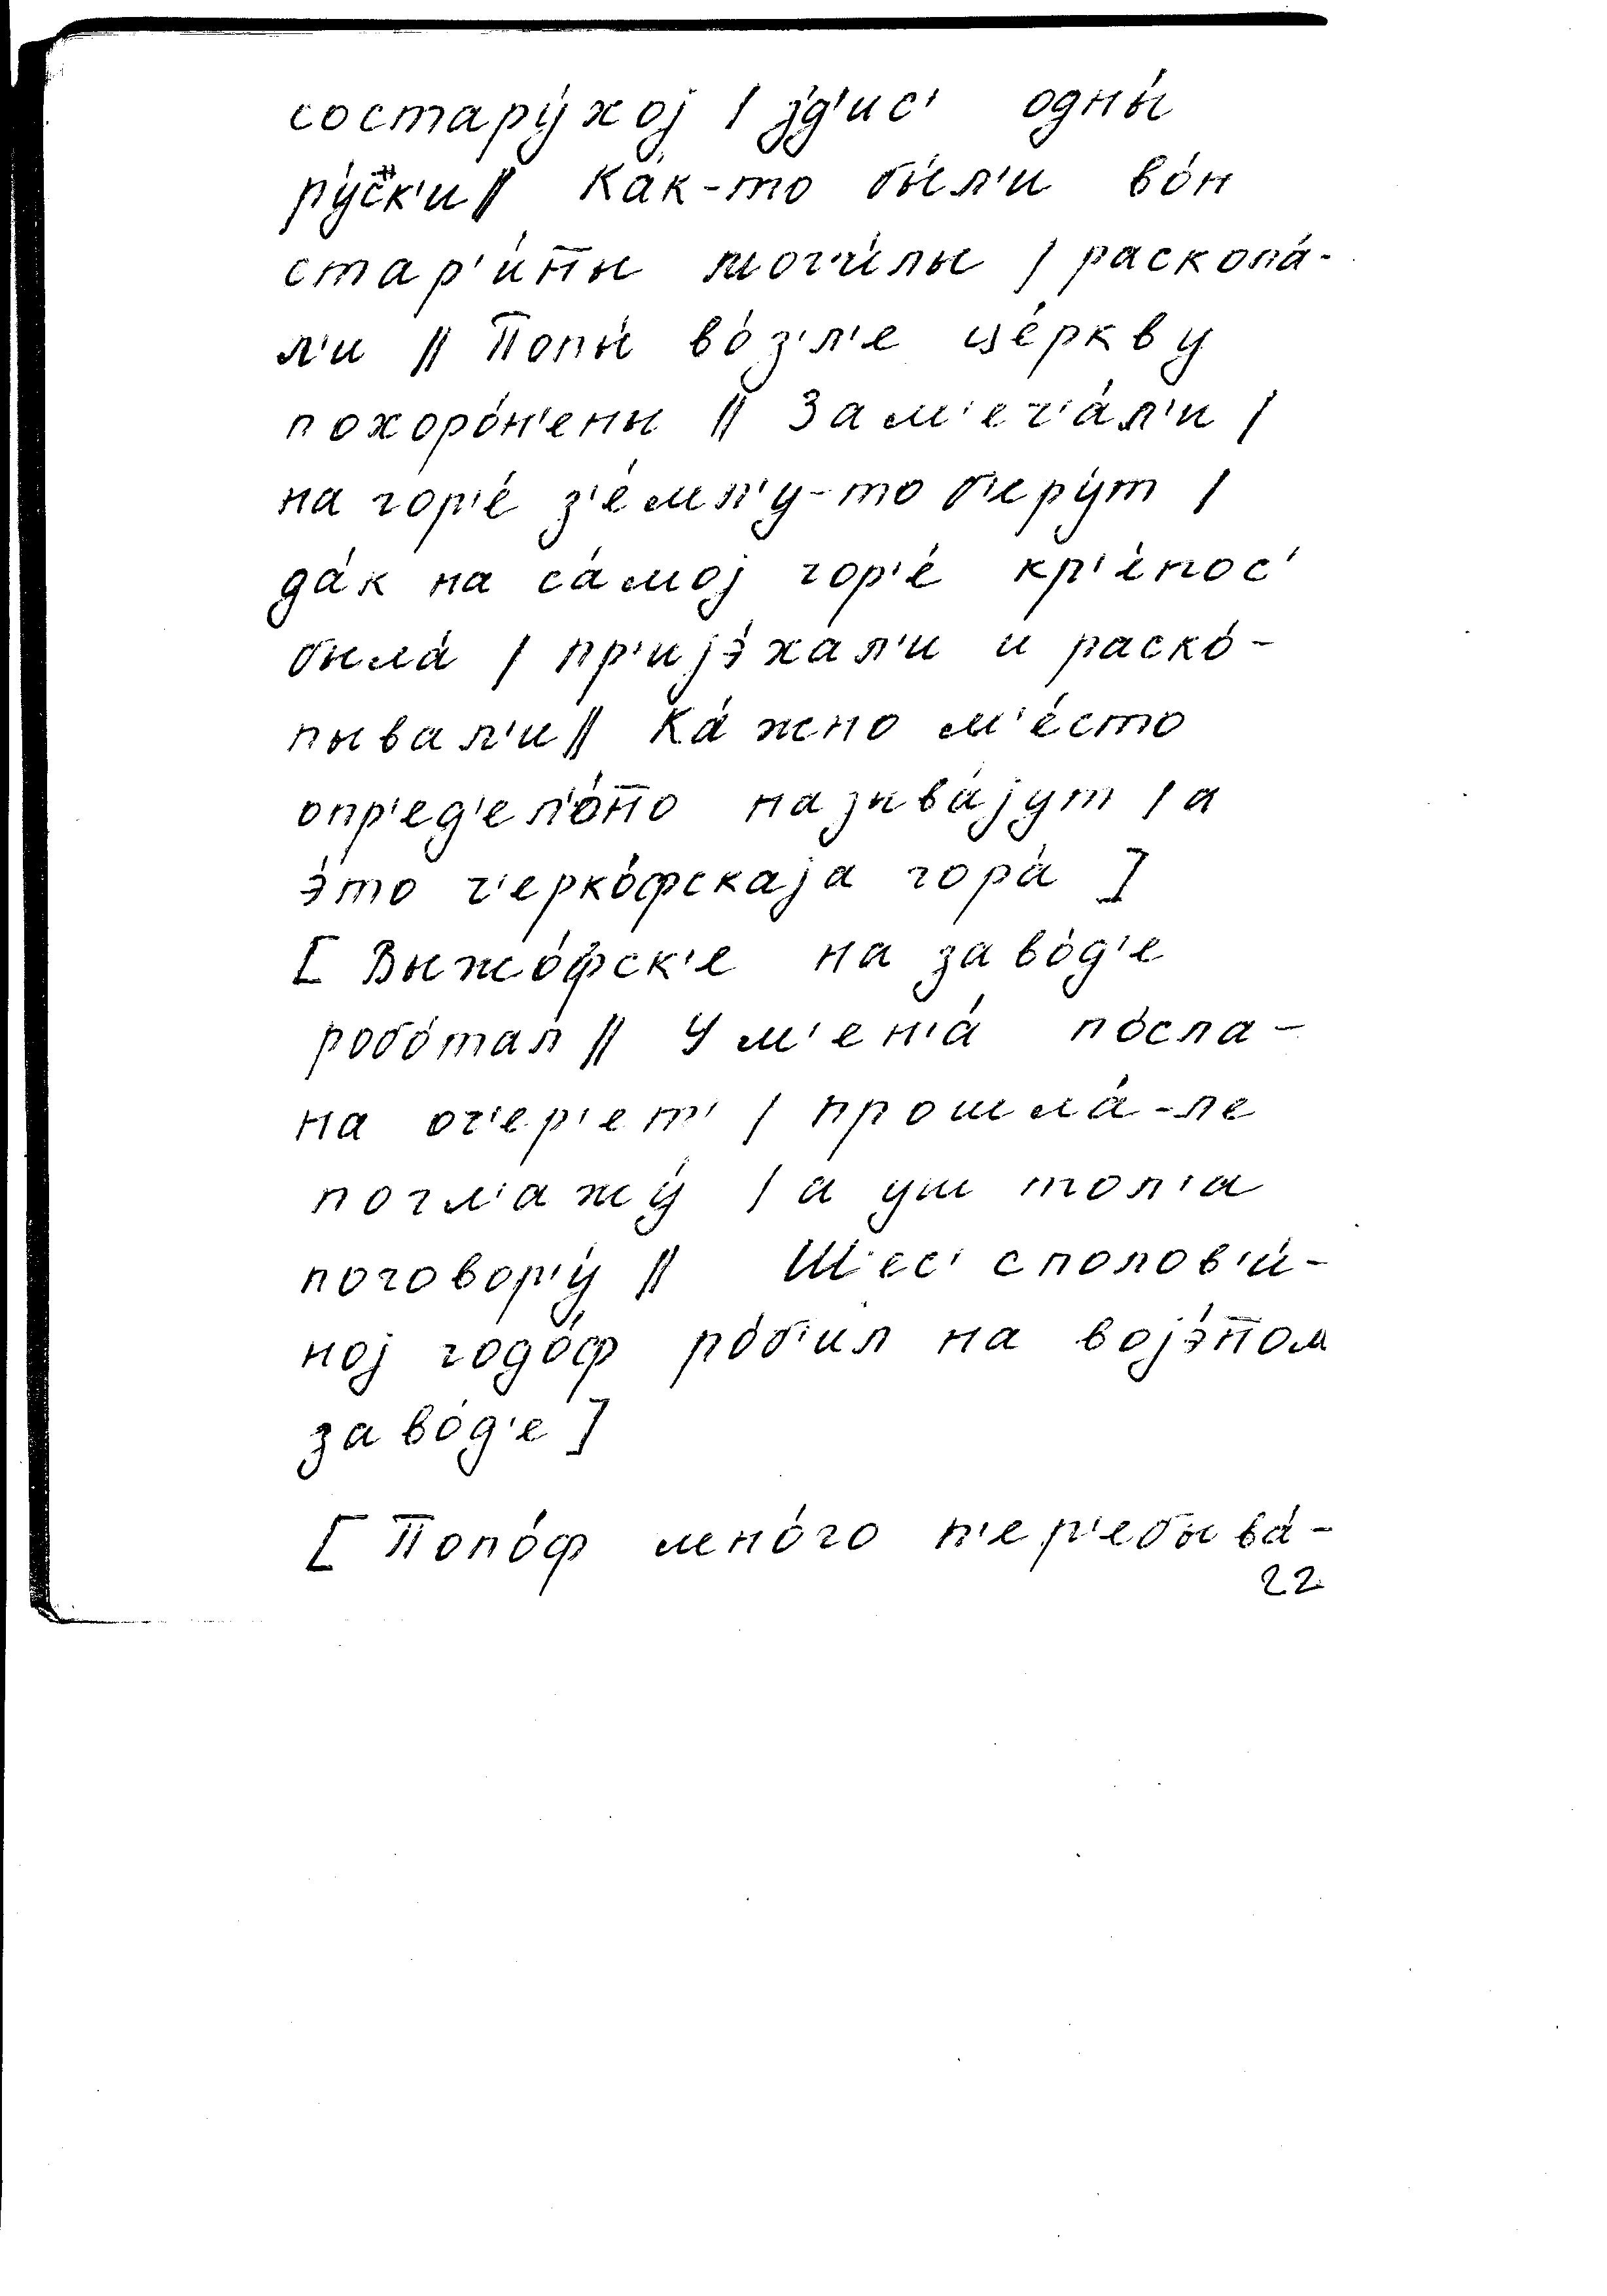 состару́хој / з'д'ис' одны́
ру́с̄к'и // Ка́к-то бы́л'и во́н
стар'и́н̄ы мог'и́лы / раскопа́-
л'и // Попы́ во́з'л'е це́ркву
похоро́н'ены // Зам'еч'а́л'и /
на гор'е́ з'е́мл'у-то б'еру́т /
да́к на са́мој гор'е́ кр'е́пос'
была́ / пр'ијэ́хал'и и раско́-
пывал'и // Ка́жно м'е́сто
опр'ед'ел'о́н̄о называ́јут / а
э́то ч'ерко́фскаја гора́ ]
[ Выжо́фск'е на заво́д'е
робо́тал // У м'ен'а́ по́сла-
на оч'ер'ет' / прошла́-ле
погл'ажу́ / а уш тол'а
поговор'у́ // Шес' сполов'и́-
ној годо́ф ро́б'ил на војэ́н̄ом
заво́д'е ]
[ Попо́ф мно́го п'ер'ебыва́-
22